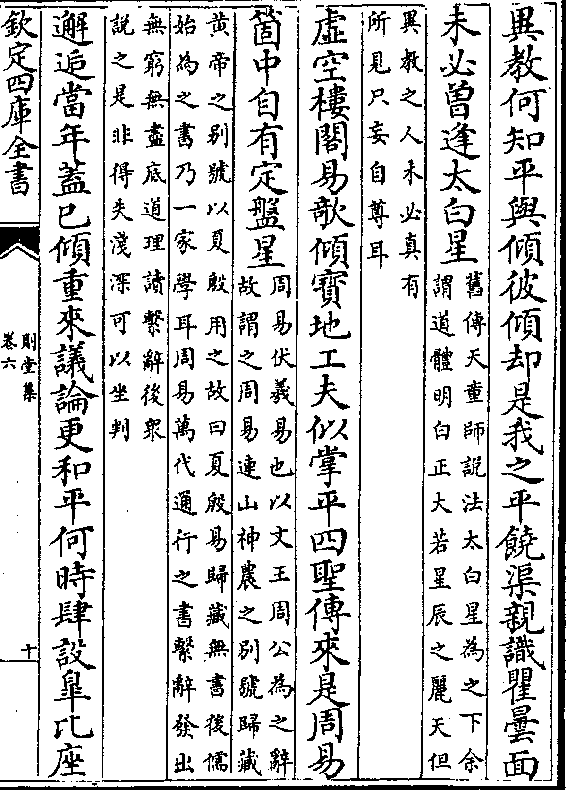 異教何知平與傾彼傾却是我之平饒渠親識瞿曇面
未必曽逢太白星
舊傳天童師說法太白星為之下余
謂道體明白正大若星辰之麗天但
異教之人未必真有
所見只妄自尊耳
虛空樓閣易欹傾寳地工夫似掌平四聖傳來是周易
箇中自有定盤星
周易伏羲易也以文王周公為之辭
故謂之周易連山神農之别號歸藏
黄帝之别號以夏殷用之故曰夏殷易歸藏無書後儒
始為之書乃一家學耳周易萬代通行之書繫辭發出
無窮無盡底道理讀繫辭後衆
說之是非得失淺深可以坐判
邂逅當年蓋已傾重來議論更和平何時肆設臯比座
欽定四庫全書
則堂集
卷六
十